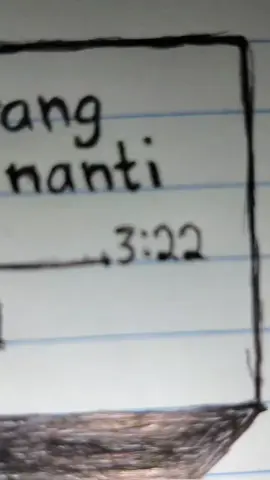 ang
nanti
3:22